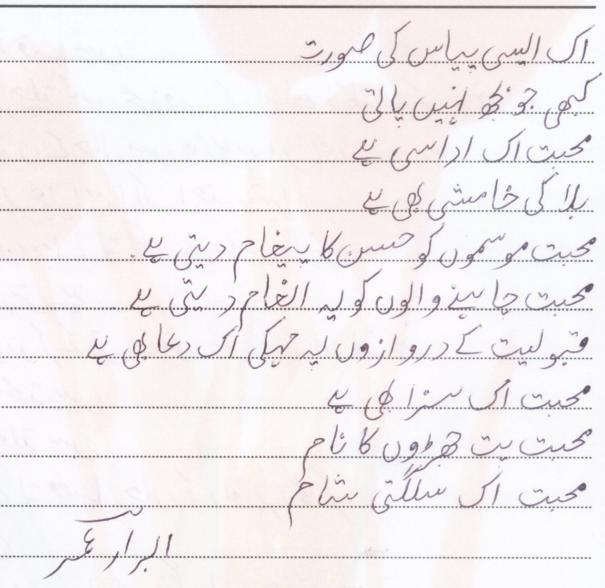 اک ایسی پیاس کی صورت
کبھی جو بجھ نہیں پاتی
محبت اک اداسی ہے
بلا کی خامشی بھی ہے
محبت موسموں کو حسن کا پیغام دیتی ہے.
محبت چاہنے والوں کو یہ انعام دیتی ہے
قبولیت کے دروازوں پہ مہکی اک دعا بھی ہے
محبت اک سزا بھی ہے
محبت پت جھڑوں کا نام
محبت اک سلگتی شام
ابرار عمر